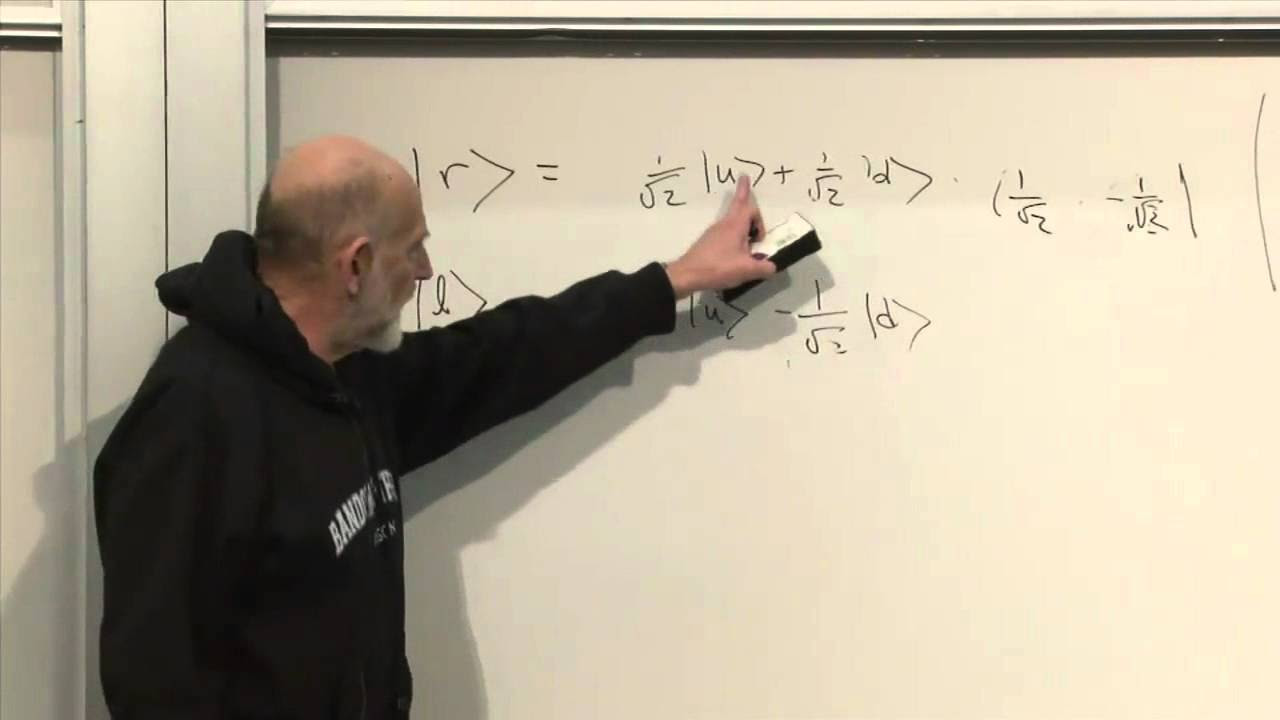 |r⟩ = 1/√2 |u⟩ + 1/√2 |d⟩ . (1/√2 . -1/√2 |
|l⟩ |u⟩ - 1/√2 |d⟩